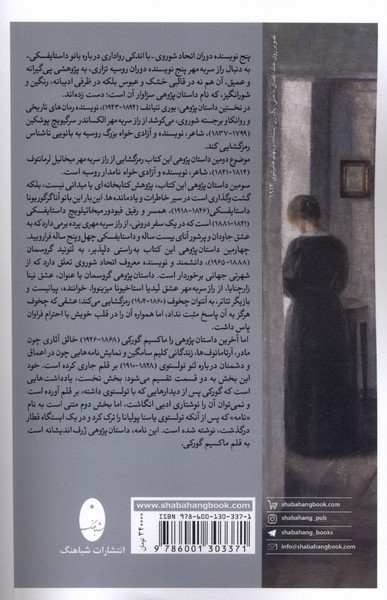 پنج نویسنده دوران اتحاد شوروی -با اندکی رواداری درباره بانو داستایفسکی-
به دنبال راز سر به مهر پنج نویسنده دوران روسیه تزاری، به پژوهشی پی‌گیرانه
و عمیق، آن هم نه در قالبی خشک و عبوس بلکه در ظرفی ادیبانه، رنگین و
شورانگیز، که نام داستان پژوهی سزاوار آن است؛ دست زده‌اند.
در نخستین داستان پژوهی، یوری تنیانف (۱۸۹۴-۱۹۴۳)، نویسنده رمان‌های تاریخی
و روانکاو برجسته روسی، می‌کوشد از راز سر به مهر الکساندر سرگیویچ پوشکین
(۱۷۹۹-۱۸۳۷)، شاعر، نویسنده و آزادی خواه بزرگ روسیه به بانویی ناشناس
رمزگشایی کند.
موضوع دومین داستان پژوهی این کتاب رمزگشایی از راز سر به مهر میخائیل لرمانتوف
(۱۸۱۴-۱۸۴۱)، شاعر، نویسنده و آزادی خواه نامدار روسیه است.
سومین داستان پژوهی این کتاب، پژوهش کتابخانه‌ای یا میدانی نیست، بلکه
گشت وگذاری است در سیر خاطرات و یادمانده‌ها. این بار این بانو آنا گرگوریونا
داستایفسکی (۱۸۴۶-۱۹۱۸)، همسر و رفیق فیودور میخائیلویچ داستایفسکی
(۱۸۲۱-۱۸۸۱) است که در یک سفر درونی، از راز سر به مهری پرده برمی دارد که به
عشق جاودان و پرشور آنای بیست ساله و داستایفسکی چهل و پنج ساله فرارویید.
چهارمین داستان پژوهی این کتاب به راستی دلپذیر، به لئونید گروسمان
(۱۸۸۸-۱۹۶۵)، دانشمند و نویسنده معروف اتحاد شوروی تعلق دارد که از
شهرتی جهانی برخوردار است. داستان پژوهی گروسمان با عنوان، عشق نینا
زارچنایا، از راز سر به مهر عشق لیدیا استاخیونا میزینووا، خواننده، پیانیست و
بازیگر تئاتر، به آنتوان چخوف (۱۸۶۰-۱۹۰۴) رمزگشایی می‌کند؛ عشقی که چخوف
هرگز به آن پاسخ مثبت نداد، اما همواره آن را در قلب خویش با احترام فراوان
پاس داشت.
اما آخرین داستان پژوهی را ماکسیم گورکی (۱۸۶۸-۱۹۳۶) خالق آثاری چون
مادر، آرتامانوف‌ها، زندگانی کلیم سامگین و نمایش‌نامه‌هایی چون در اعماق
و دشمنان درباره لئو تولستوی (۱۸۲۸-۱۹۱۰) بر قلم جاری کرده است. خود
این بخش به دو قسمت تقسیم می‌شود: بخش نخست، یادداشت‌هایی
است که گورکی پس از دیدارهایی که با تولستوی داشته، بر قلم آورده است
و نمی‌توان آن را نوشتاری ادبی انگاشت، اما بخش دوم متنی است به نام
«نامه» که پس از آنکه تولستوی یاسنا پولیانا را ترک کرد و در یک ایستگاه قطار
درگذشت، نوشته شده است. این نامه، داستان پژوهی ژرف اندیشانه است
به قلم ماکسیم گورکی.
www.shabahangbook.com
ISBN 978-600-130-337-1
9 786001 303371
۳۴۰۰۰۰ تومان
انتشارات شباهنگ
shabahangbook.com
shabahang_pub
shabahang_books
info@shabahangbook.com